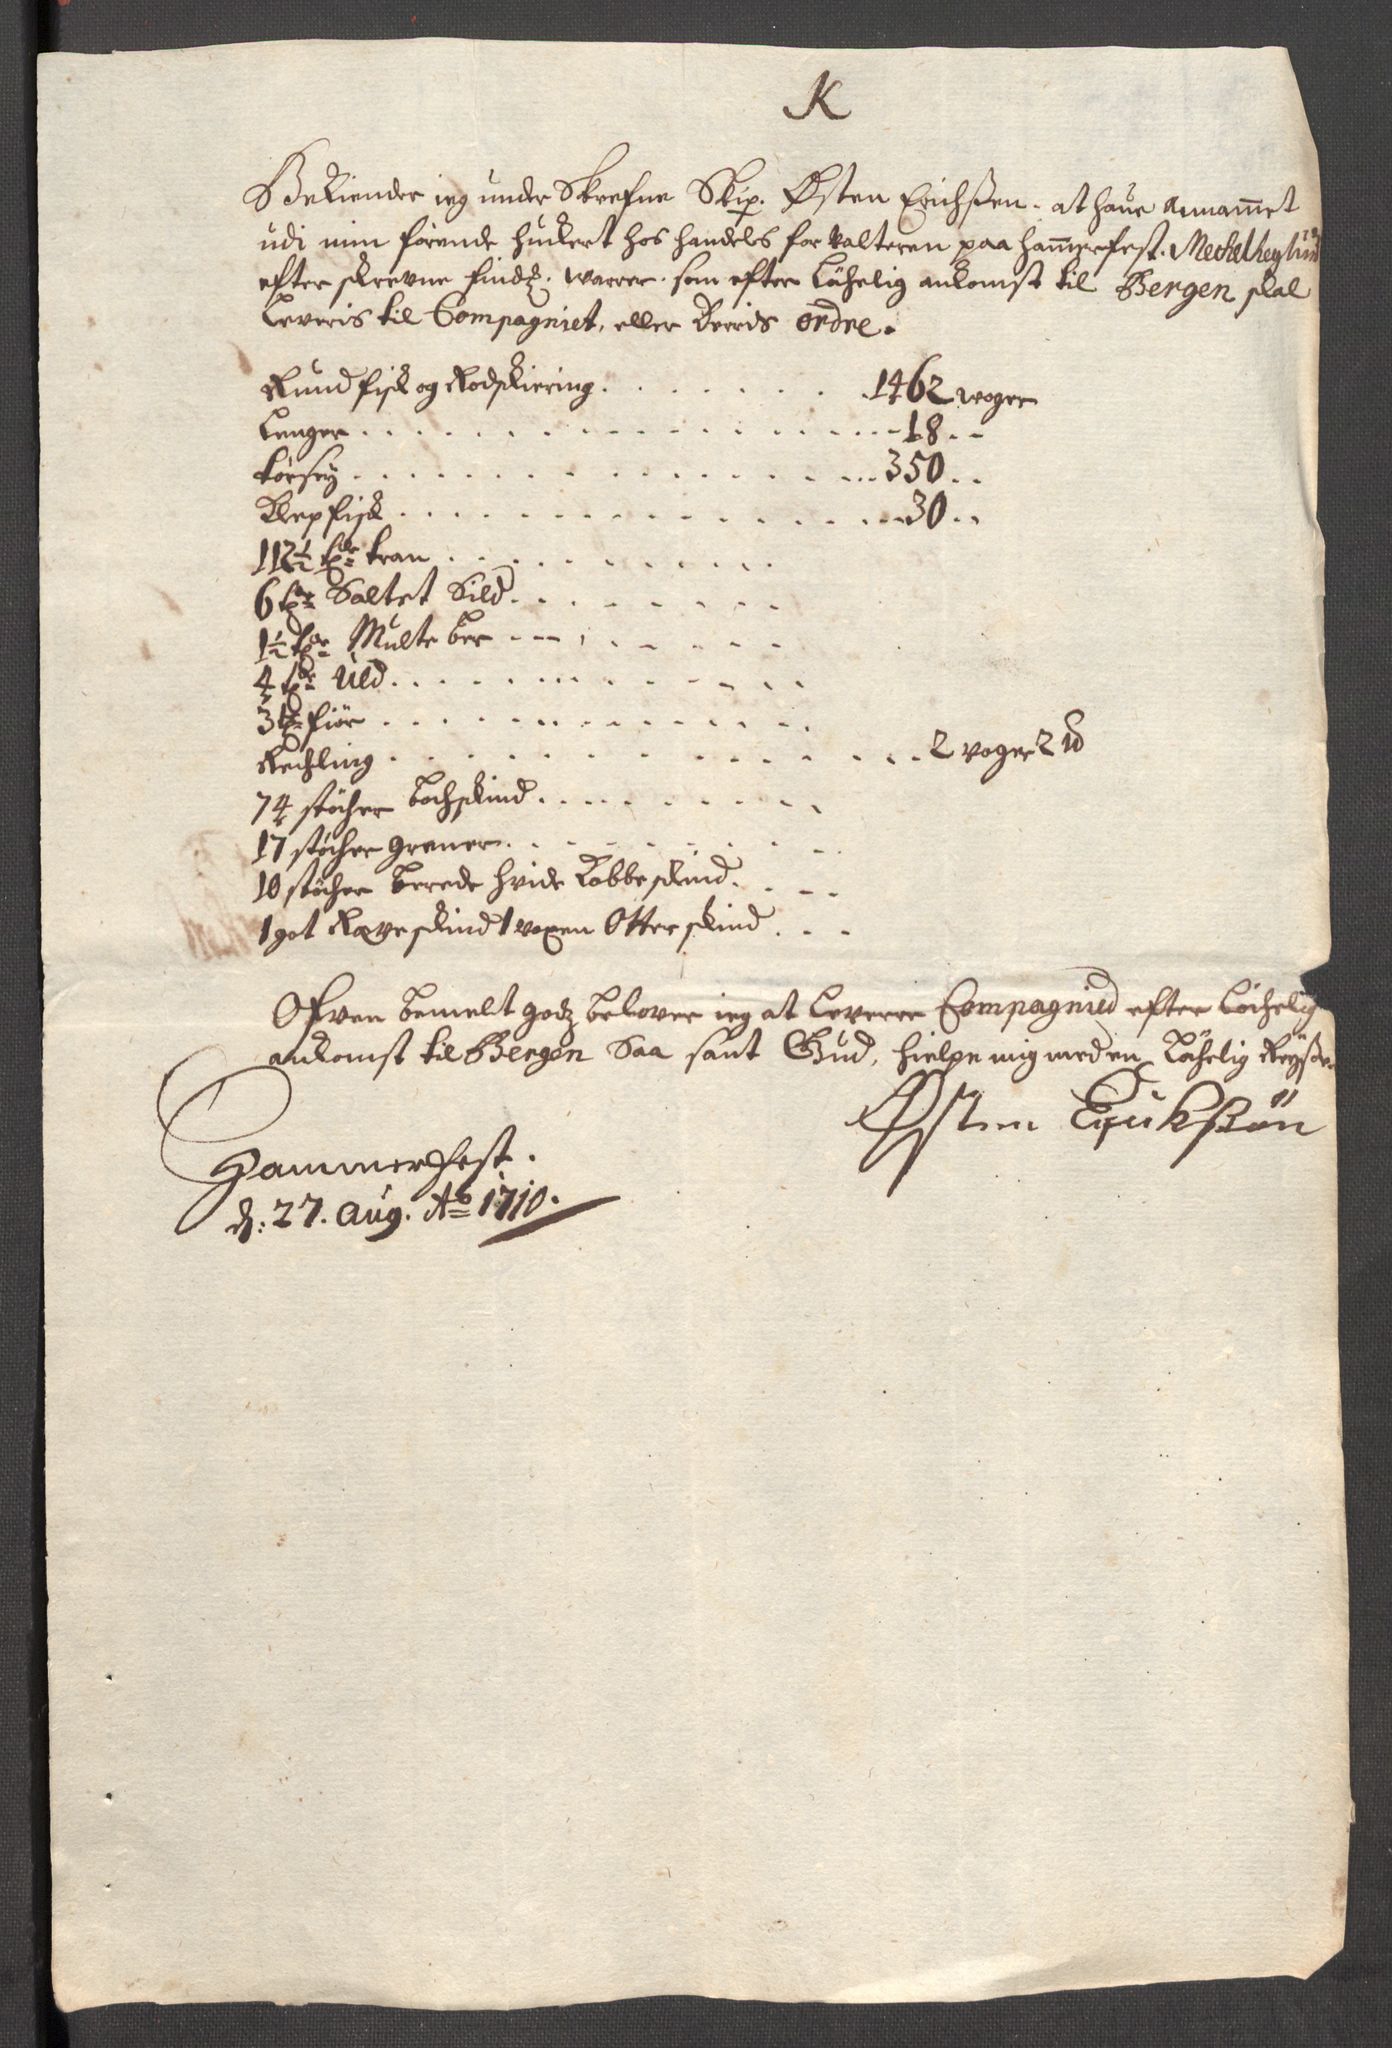 K
Bekiender ieg under Skrefne Skip. Østen Erichßen. at haue Annammet
udi min førende huckert hos handels forvalteren paa Hammerfest.
efter skrevne Findz. warrer. som efter Løchelig ankomst til Bergen skal
Leveris til Compagniet, eller Deeris ordre.
Rundfisk og Rodskiering . . . . . . . 1462 woger
Lenger . . . . . . . 18 . .
torsey . . . . . . . 350 . .
Klepfisk . . . . . . . 30 . .
112½ tdr tran . . . . . . .
6 tdr Saltet Sild . . . . . . .
1½ tdr Multe ber . . . . . . .
4 tdr Uld . . . . . . .
3 fiør . . . . . . .
Rechling . . . . . . . 2 voger 2 ℔
74 støcher bochskind . . . . . . .
17 støcher grener . . . . . . .
10 støcher berede hvide Kobbeskind . . . .
1 got Røveskind 1 voxen Otterskind . . .
Ofven bemelt godz belover ieg at Leverre Compagnied efter Løchelig
ankomst til Bergen Saa sant Gud, hielpe mig med en Løchelig Reyße
Østen Erikßøn
Hammerfest.
d: 27. Aug. Ao 1710.